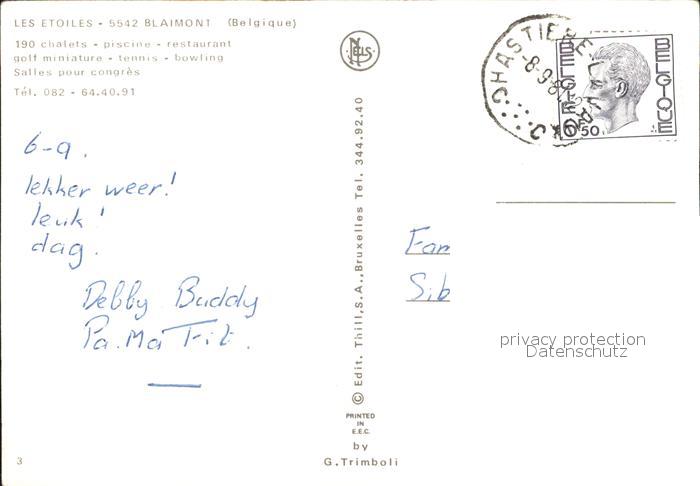 LES ETOILES - 5542 BLAIMONT (Belgique)
190 chalets - piscine - restaurant
golf miniature - tennis - bowling
Salles pour congrès
Tél. 082 - 64.40.91
NELS
BELGIQUE
BELGIE
6F50
6-9.
lekker weer!
leuk!
dag.
Debby Buddy
Pa. Ma Frit.
Fam
Sib
privacy protection
Datenschutz
© Edit. Thill, S.A., Bruxelles Tel. 344.92.40
PRINTED
IN
E.E.C.
by
G. Trimboli
3